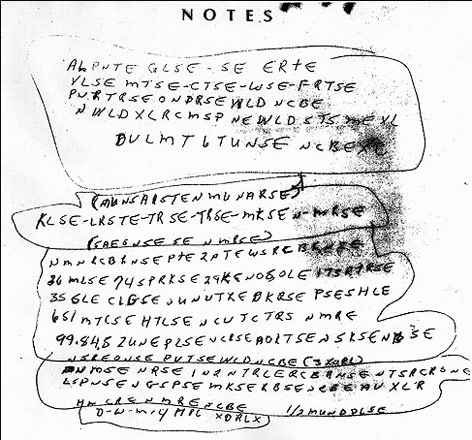 NOTES
ALPNTE GLSE - SE ERTE
VLSE MTSE-CTSE-WSE-FRTSE
PNRTRSE ONDRSE WLD NCBE
NWLDXLRCMSP NEWLD STS MEXL
DULMT 6TUNSE NCBEXC
(MUNSAISTENMUNARSE)
KLSE-LRSTE-TRSE-TRSE-MKSE N-MRSE
(SAE6NSE SE NMRSE)
NMNRCBRNSE PTE 2PTEWSRCBRNSE
36 MLSE 74 SPRKSE 29 KENOSOLE 173RTRSE
35 GLE CLGSE UNUTXE DKRSE PSESHLE
651 MTCSE HTLSE NCUTCTRS NMRE
99.84.52 UNEPLSE NCRSE AOLTSE NSKSE NBSE
NSREONSE PUTSE WLD NCBE (3 XORL)
DNMSE NRSE IN2NTRLERCBRNSE NTSRCRSNE
LSPNSE NGSPSE MKSERBSE NCBE AUXLR
HMCRE NMRE NCBE 1/2 MUNDDLSE
D-W-M-4 MPL XDRLX